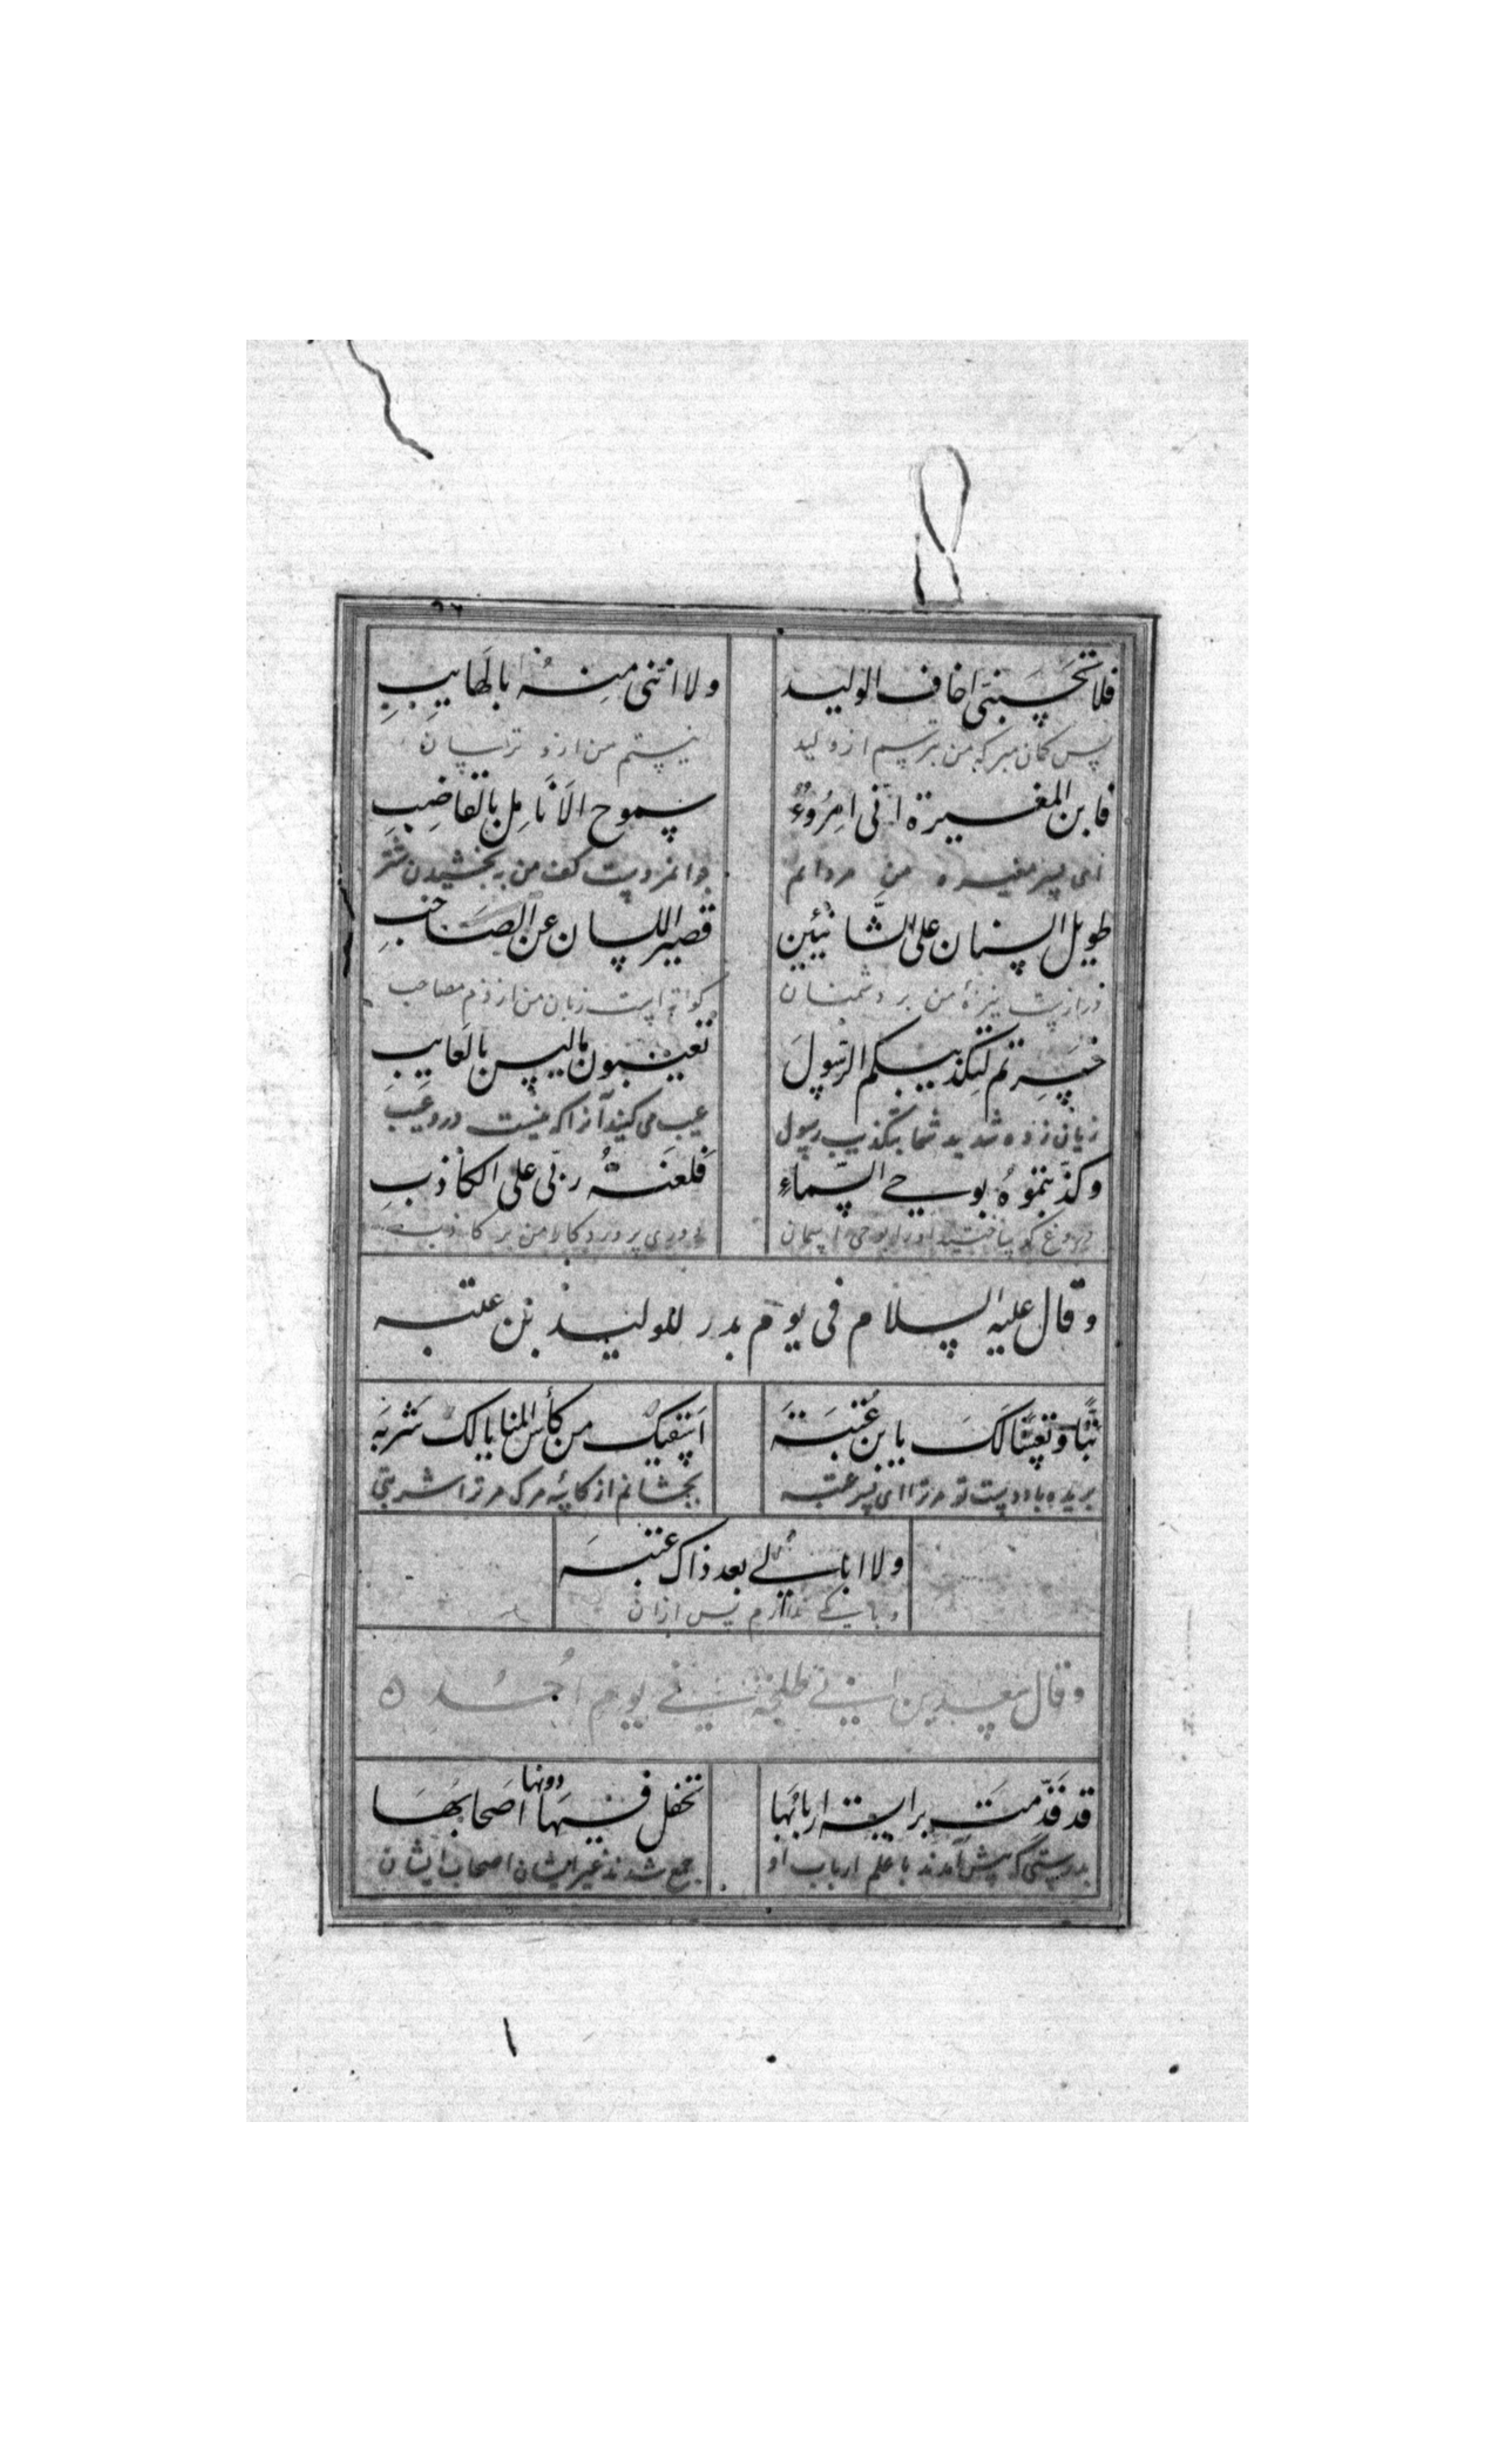 فلا تحسبنی اخاف الولید ولا اننی منه بالهایب
پس کمان مبر که من بترسم از ولید نیستم من ازو ترسان
فابن المغیرة انی امرؤ سموح الانامل بالقاضب
ای پسر مغیره من مردانم جوانمردست کف من به بخشیدن
طویل السنان علی الشانئین قصیر اللسان عن الصاحب
درازست نیزهٔ من بر دشمنان کوتاه است زبان من از ذم مصاحب
خسرتم بتکذیبکم الرسول تعیبون مالیس بالعایب
زیان زده شدید شما بتکذیب رسول عیب می کنید آنرا که نیست درو عیب
وکذبتموه بوحی السماء فلعنة ربی علی الکاذب
اورا بوحی اسمان دوری پروردکار من بر کاذب
وقال علیه السلام فی یوم بدر للولید بن عتبه
تبا وتعسا لک یا بن عتبة اسقیک من کأس المنایا لک شربه
بریده باد دست تو مر ترا ای پسر عتبه بچشانم از کاسهٔ مرک مر ترا شربتی
ولا ابالی بعد ذاک عتبه
وباکی ندارم پس ازان
وقال سعید بن ابی طلحة فی یوم احد
قد قدمت برایة اربابها تحفل فیها دونها اصحابها
بدرستی که پیش آمدند با علم ارباب او جمع شدند غیر ایشان اصحاب ایشان